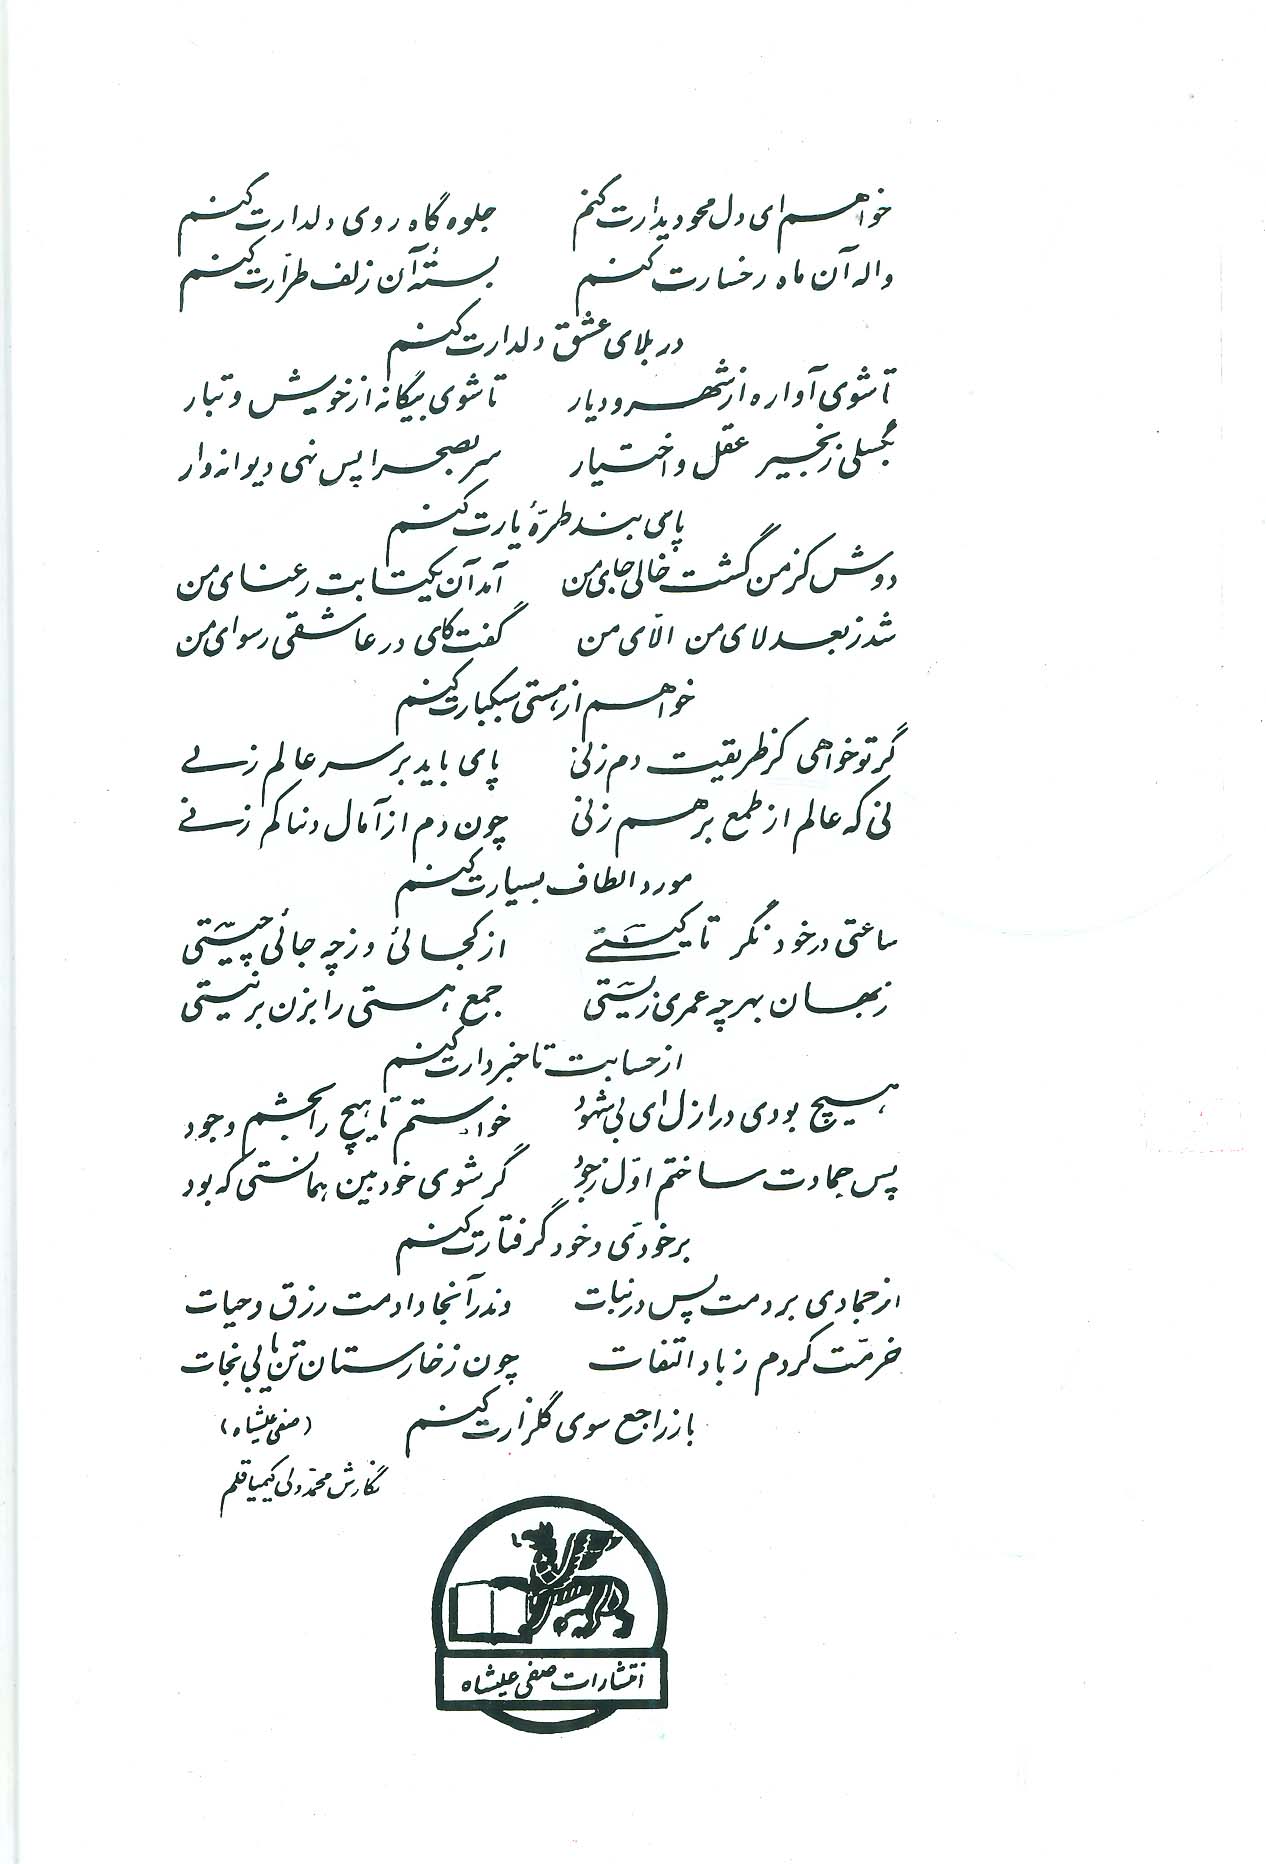 خواهم ای دل محو دیدارت کنم جلوه گاه روی دلدارت کنم
واله آن ماه رخسارت کنم بستهٔ آن زلف طرّارت کنم
در بلای عشق دلدارت کنم
تا شوی آواره از شهر و دیار تا شوی بیگانه از خویش و تبار
بگسلی زنجیر عقل و اختیار سر بصحرا پس نهی دیوانه وار
پای بند طرّهٔ یارت کنم
دوش کز من گشت خالی جای من آمد آن یکتا بت رعنای من
شد ز بعد لای من الّای من گفت کای در عاشقی رسوای من
خواهم از هستی سبکبارت کنم
گر تو خواهی کز طریقیت دم زنی پای باید بر سر عالم زنی
نی که عالم از طمع برهم زنی چون دم از آمال دنیا کم زنی
مورد الطاف بسیارت کنم
ساعتی در خود نگر تا کیستی از کجائی وز چه جائی چیستی
در جهان بهر چه عمری زیستی جمع هستی را بزن بر نیستی
از حسابت تا خبردارت کنم
هیچ بودی در ازل ای بی شهود خواستم تا هیچ را بخشم وجود
پس جمادت ساختم اوّل ز جود گر شوی خودبین همانستی که بود
بر خودی و خود گرفتارت کنم
از جمادی بردمت پس در نبات وندر آنجا دادمت رزق و حیات
خرمّت کردم ز باد التفات چون ز خارستان تن یابی نجات
باز راجع سوی گلزارت کنم (صفی علیشاه)
نگارش محمّدولی کیمیاقلم
انتشارات صفی علیشاه